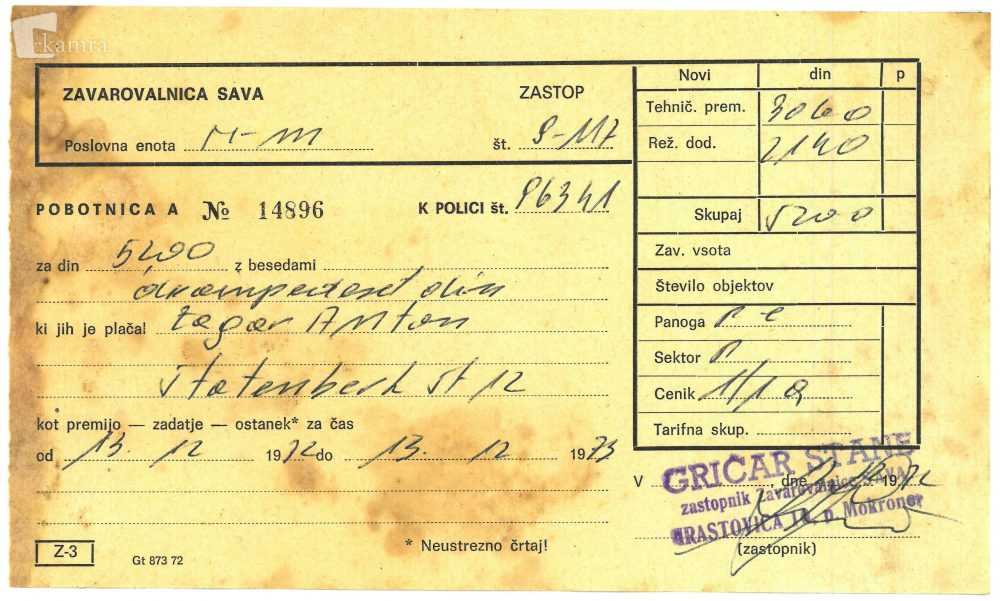 kamra
ZAVAROVALNICA SAVA
ZASTOP
Poslovna enota M-m
št. 9-117
Novi din p
Tehnič. prem. 3060
Rež. dod. 2140
Skupaj 5200
Zav. vsota
Število objektov
Panoga
Sektor
Cenik 1/1 a
Tarifna skup.
POBOTNICA A № 14896
K POLICI št. 96341
za din 5200 z besedami
din
ki jih je plačal Anton
št 12
kot premijo — zadatje — ostanek* za čas
od 13. 12 1972 do 13. 12 1973
V , dne 1972
GRIČAR STANE
zastopnik Zavarovalnice SAVA
HRASTOVICA p. Mokronog
(zastopnik)
* Neustrezno črtaj!
Z-3
Gt 873 72